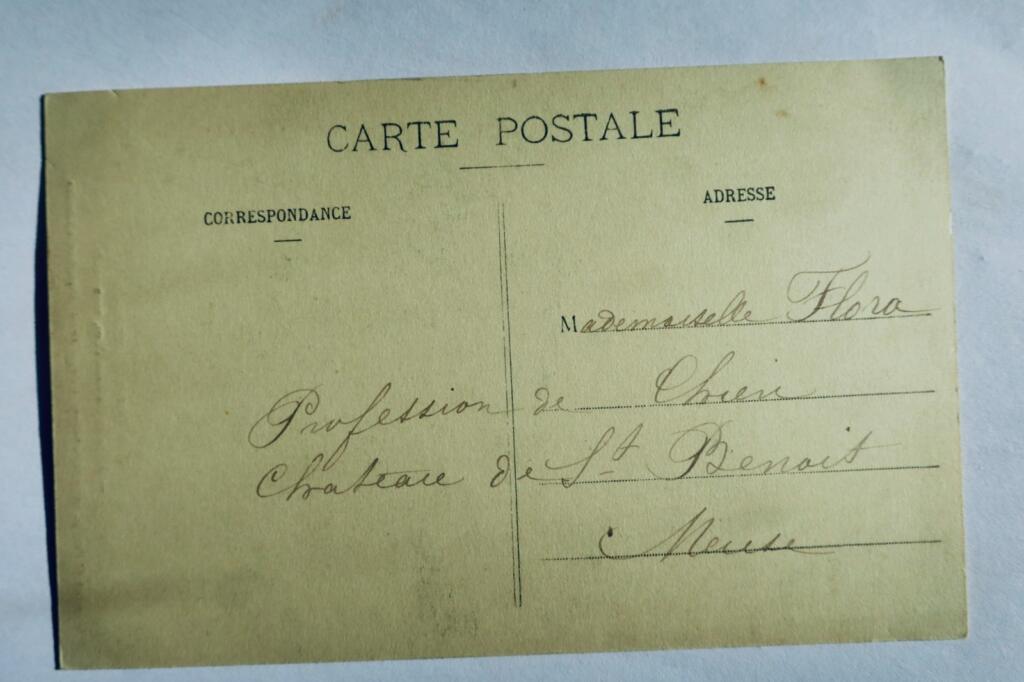 CARTE POSTALE
CORRESPONDANCE
ADRESSE
Mademoiselle Flora
Profession de Chien
Chateau de St Benoit
Meuse